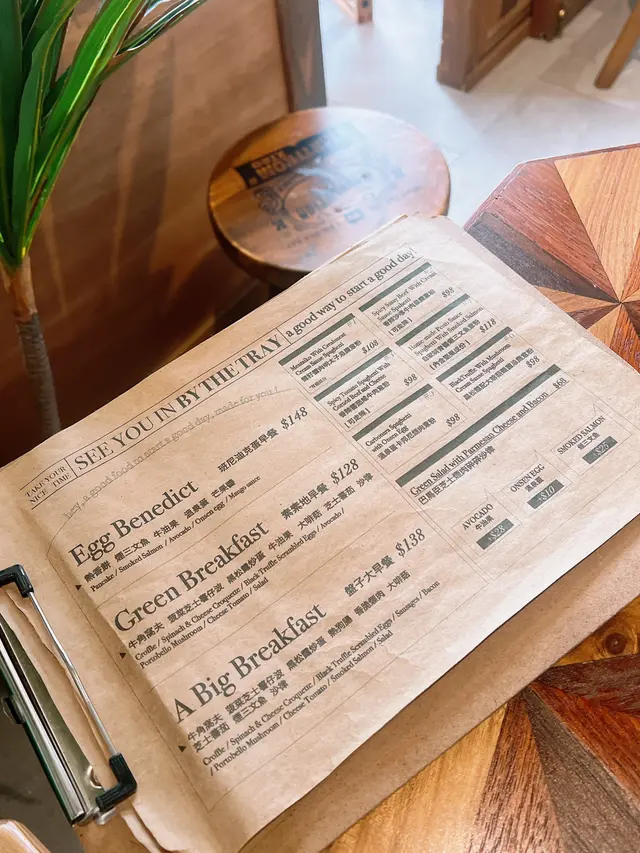 TAKE YOUR
NICE TIME
SEE YOU IN BY THE TRAY
a good way to start a good day!
a good food to start a good day, made for you !
Egg Benedict
班尼迪克蛋早餐 $148
熱香餅 煙三文魚 牛油果 溫泉蛋 芒果醬
Pancake / Smoked Salmon / Avocado / Onsen egg / Mango sauce
Green Breakfast
素素地早餐 $128
牛角窩夫 菠菜芝士薯仔波 黑松露炒蛋 牛油果 大啡菇 芝士蕃茄 沙律
Croffle / Spinach & Cheese Croquette / Black Truffle Scrambled Eggs / Avocado
/ Portobello Mushroom / Cheese Tomato / Salad
A Big Breakfast
盤子大早餐 $138
牛角窩夫 菠菜芝士薯仔波 黑松露炒蛋 熱狗腸 香燒煙肉 大啡菇
芝士蕃茄 煙三文魚 沙律
Croffle / Spinach & Cheese Croquette / Black Truffle Scrambled Eggs / Sausages / Bacon
/ Portobello Mushroom / Cheese Tomato / Smoked Salmon / Salad
Cream Sauce Spaghetti
$108
Spicy Tomato Spaghetti With
Cheese
[可走辣]
$98
Carbonara Spaghetti
with Onsen Egg
$98
Spicy Satay Beef With Cream
Sauce Spaghetti
[可走辣]
$98
Home-made Pesto Sauce
Spaghetti With Smoked Salmon
$118
Black Truffle With Mushroom
Cream Sauce Spaghetti
$98
Green Salad with Parmesan Cheese and Bacon $68
巴馬臣芝士煙肉碎碎沙律
AVOCADO
牛油果
+$28
ONSEN EGG
溫泉蛋
+$10
SMOKED SALMON
煙三文魚